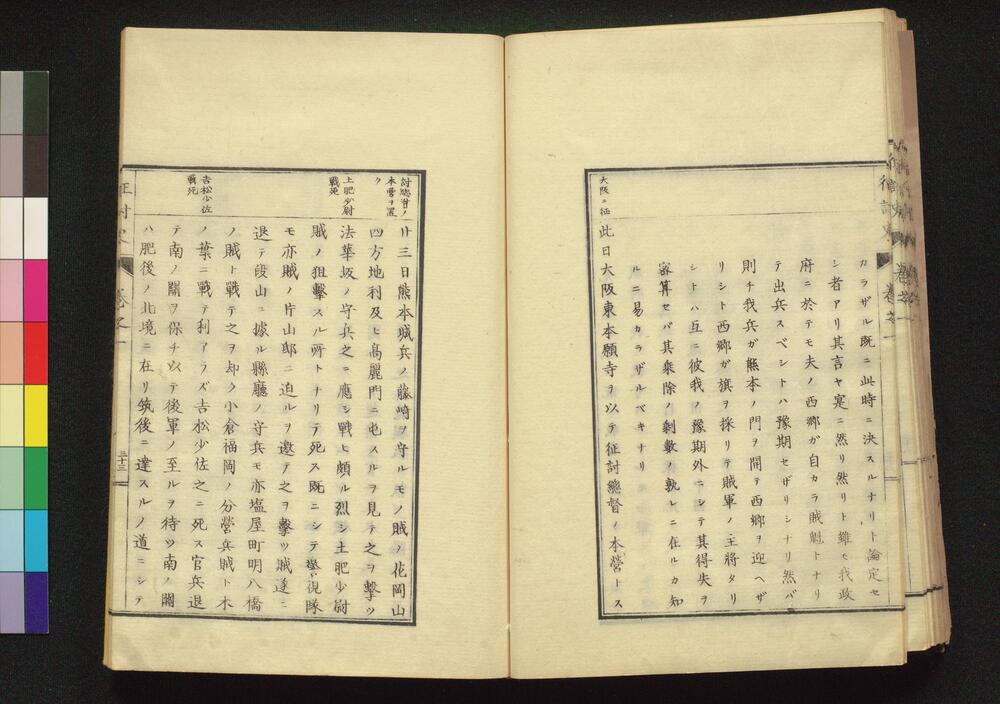 カラザル既ニ此時ニ決スルナリト論定セ
シ者アリ其言ヤ寔ニ然リ然リト雖モ我政
府ニ於テモ夫ノ西郷ガ自カラ賊魁トナリ
テ出兵スベシトハ豫期セザリシナリ然バ
則チ我兵ガ熊本ノ門ヲ開テ西郷ヲ迎ヘザ
リシト西郷ガ旗ヲ採リテ賊軍ノ主將タリ
シトハ互ニ彼我ノ豫期外ニシテ其得失ヲ
審算セバ其乘除ノ剰數ノ孰レニ在ルカ知
ルニ易カラザルベキナリ
大阪ニ征
此日大阪東本願寺ヲ以テ征討總督ノ本營トス
討總督ノ
本營ヲ置
ク
廿三日熊本城兵ノ藤崎ヲ守ルモノ賊ノ花岡山
四方地利及ヒ高麗門ニ屯スルヲ見テ之ヲ擊ツ
上肥少尉
戰死
法華坂ノ守兵之ニ應シ戰ヒ頗ル烈シ土肥少尉
賊ノ狙擊スル所トナリテ死ス既ニシテ警視隊
モ亦賊ノ片山邸ニ迫ルヲ邀テ之ヲ擊ツ賊遂ニ
退テ段山ニ據ル縣廳ノ守兵モ亦塩屋町明八橋
ノ賊ト戰テ之ヲ却ク小倉福岡ノ分營兵賊ト木
吉松少佐
戰死
ノ葉ニ戰テ利アラズ吉松少佐之ニ死ス官兵退
テ南ノ關ヲ保チ以テ後軍ノ至ルヲ待ツ南ノ關
ハ肥後ノ北境ニ在リ筑後ニ達スルノ道ニシテ
征討史 卷之一 三十三